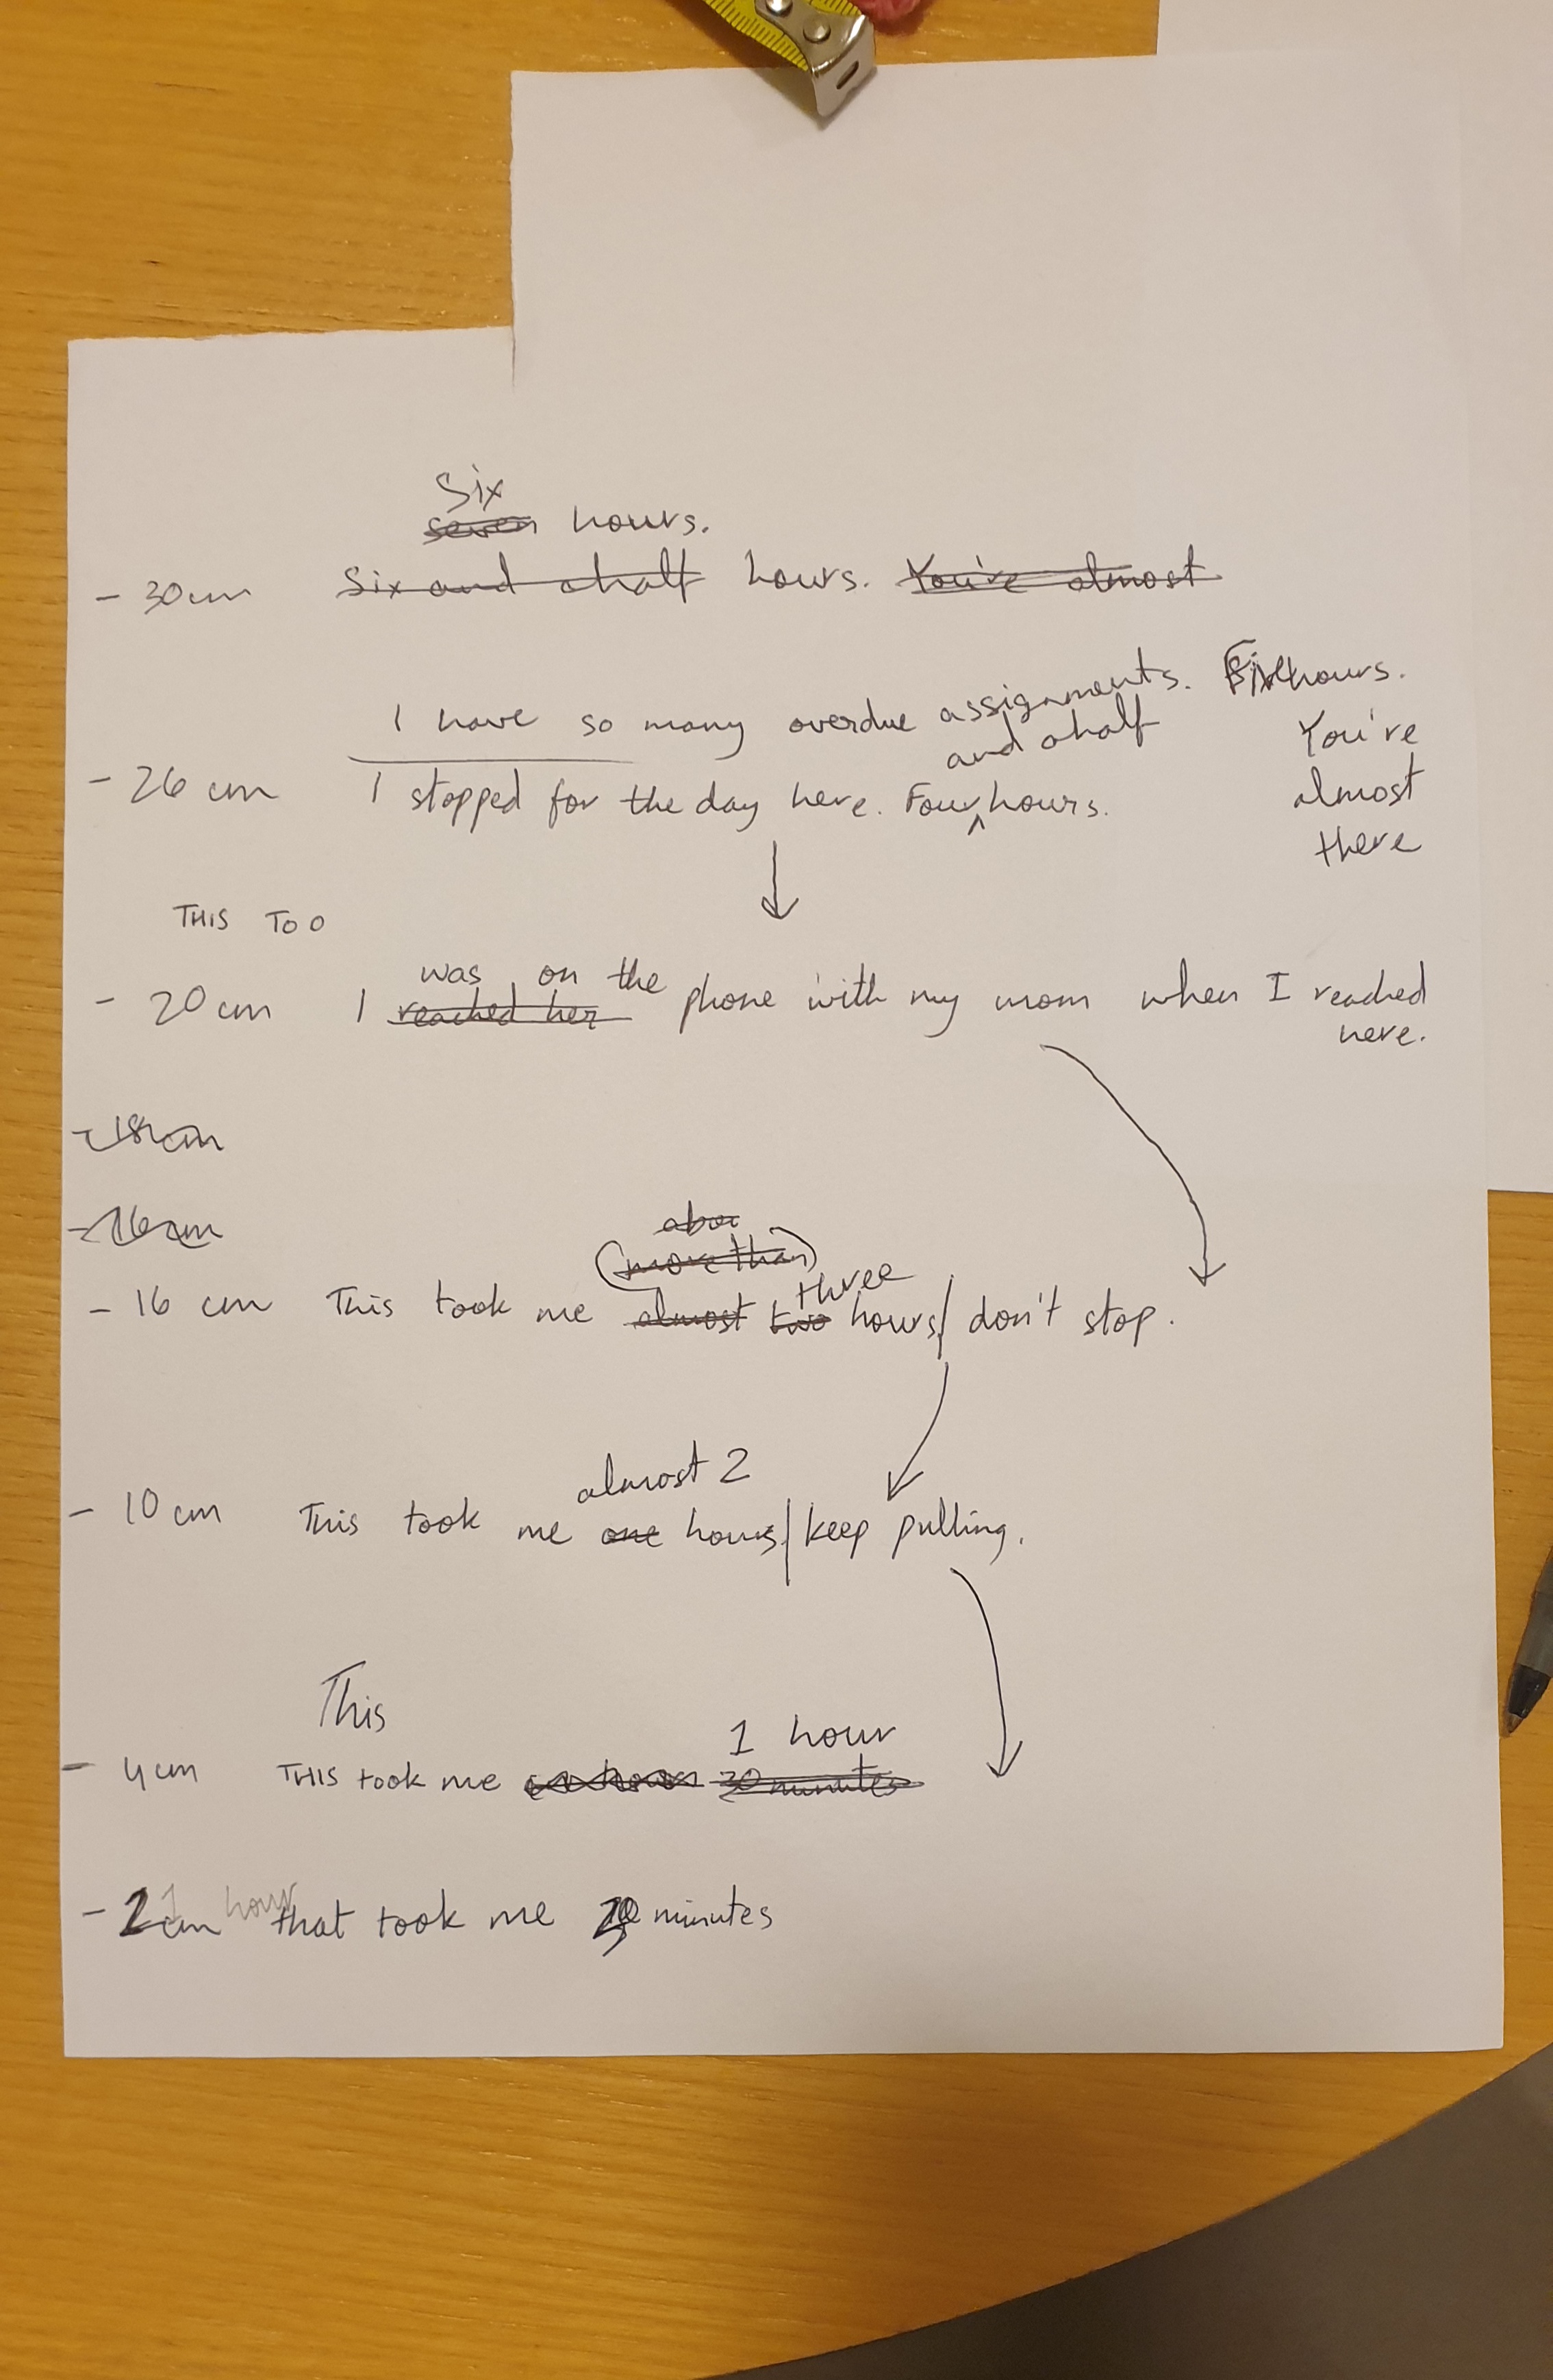 Six
seven hours.
- 30cm Six and a half hours. You're almost
I have so many overdue assignments. Five hours.
and a half
You're
almost
there
- 26 cm I stopped for the day here. Four^hours.
THIS TOO
was on the
- 20cm I reached her phone with my mom when I reached
here.
- 18cm
- 16cm
abou
(more than)
three
- 16 cm This took me almost two hours/ don't stop.
almost 2
- 10cm This took me one hours/ keep pulling.
This
1 hour
- 4cm THIS took me 30 minutes
1 hour
- cm that took me minutes